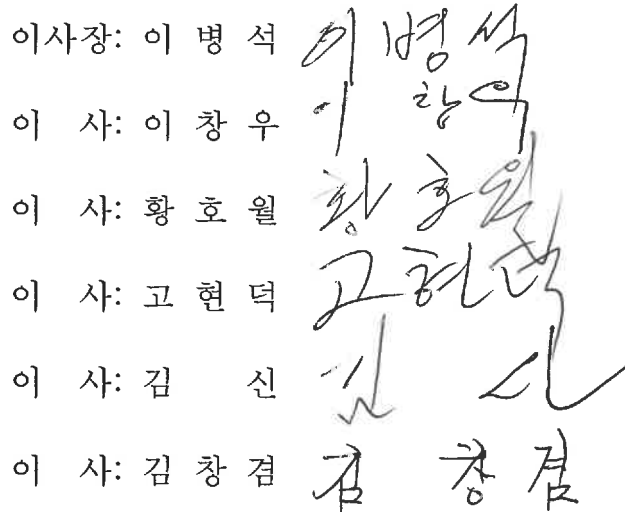 이사장: 이 병 석 이 병 석
이 사: 이 창 우 이 창 우
이 사: 황 호 월 황 호 월
이 사: 고 현 덕 고 현 덕
이 사: 김 신 김 신
이 사: 김 창 겸 김 창 겸